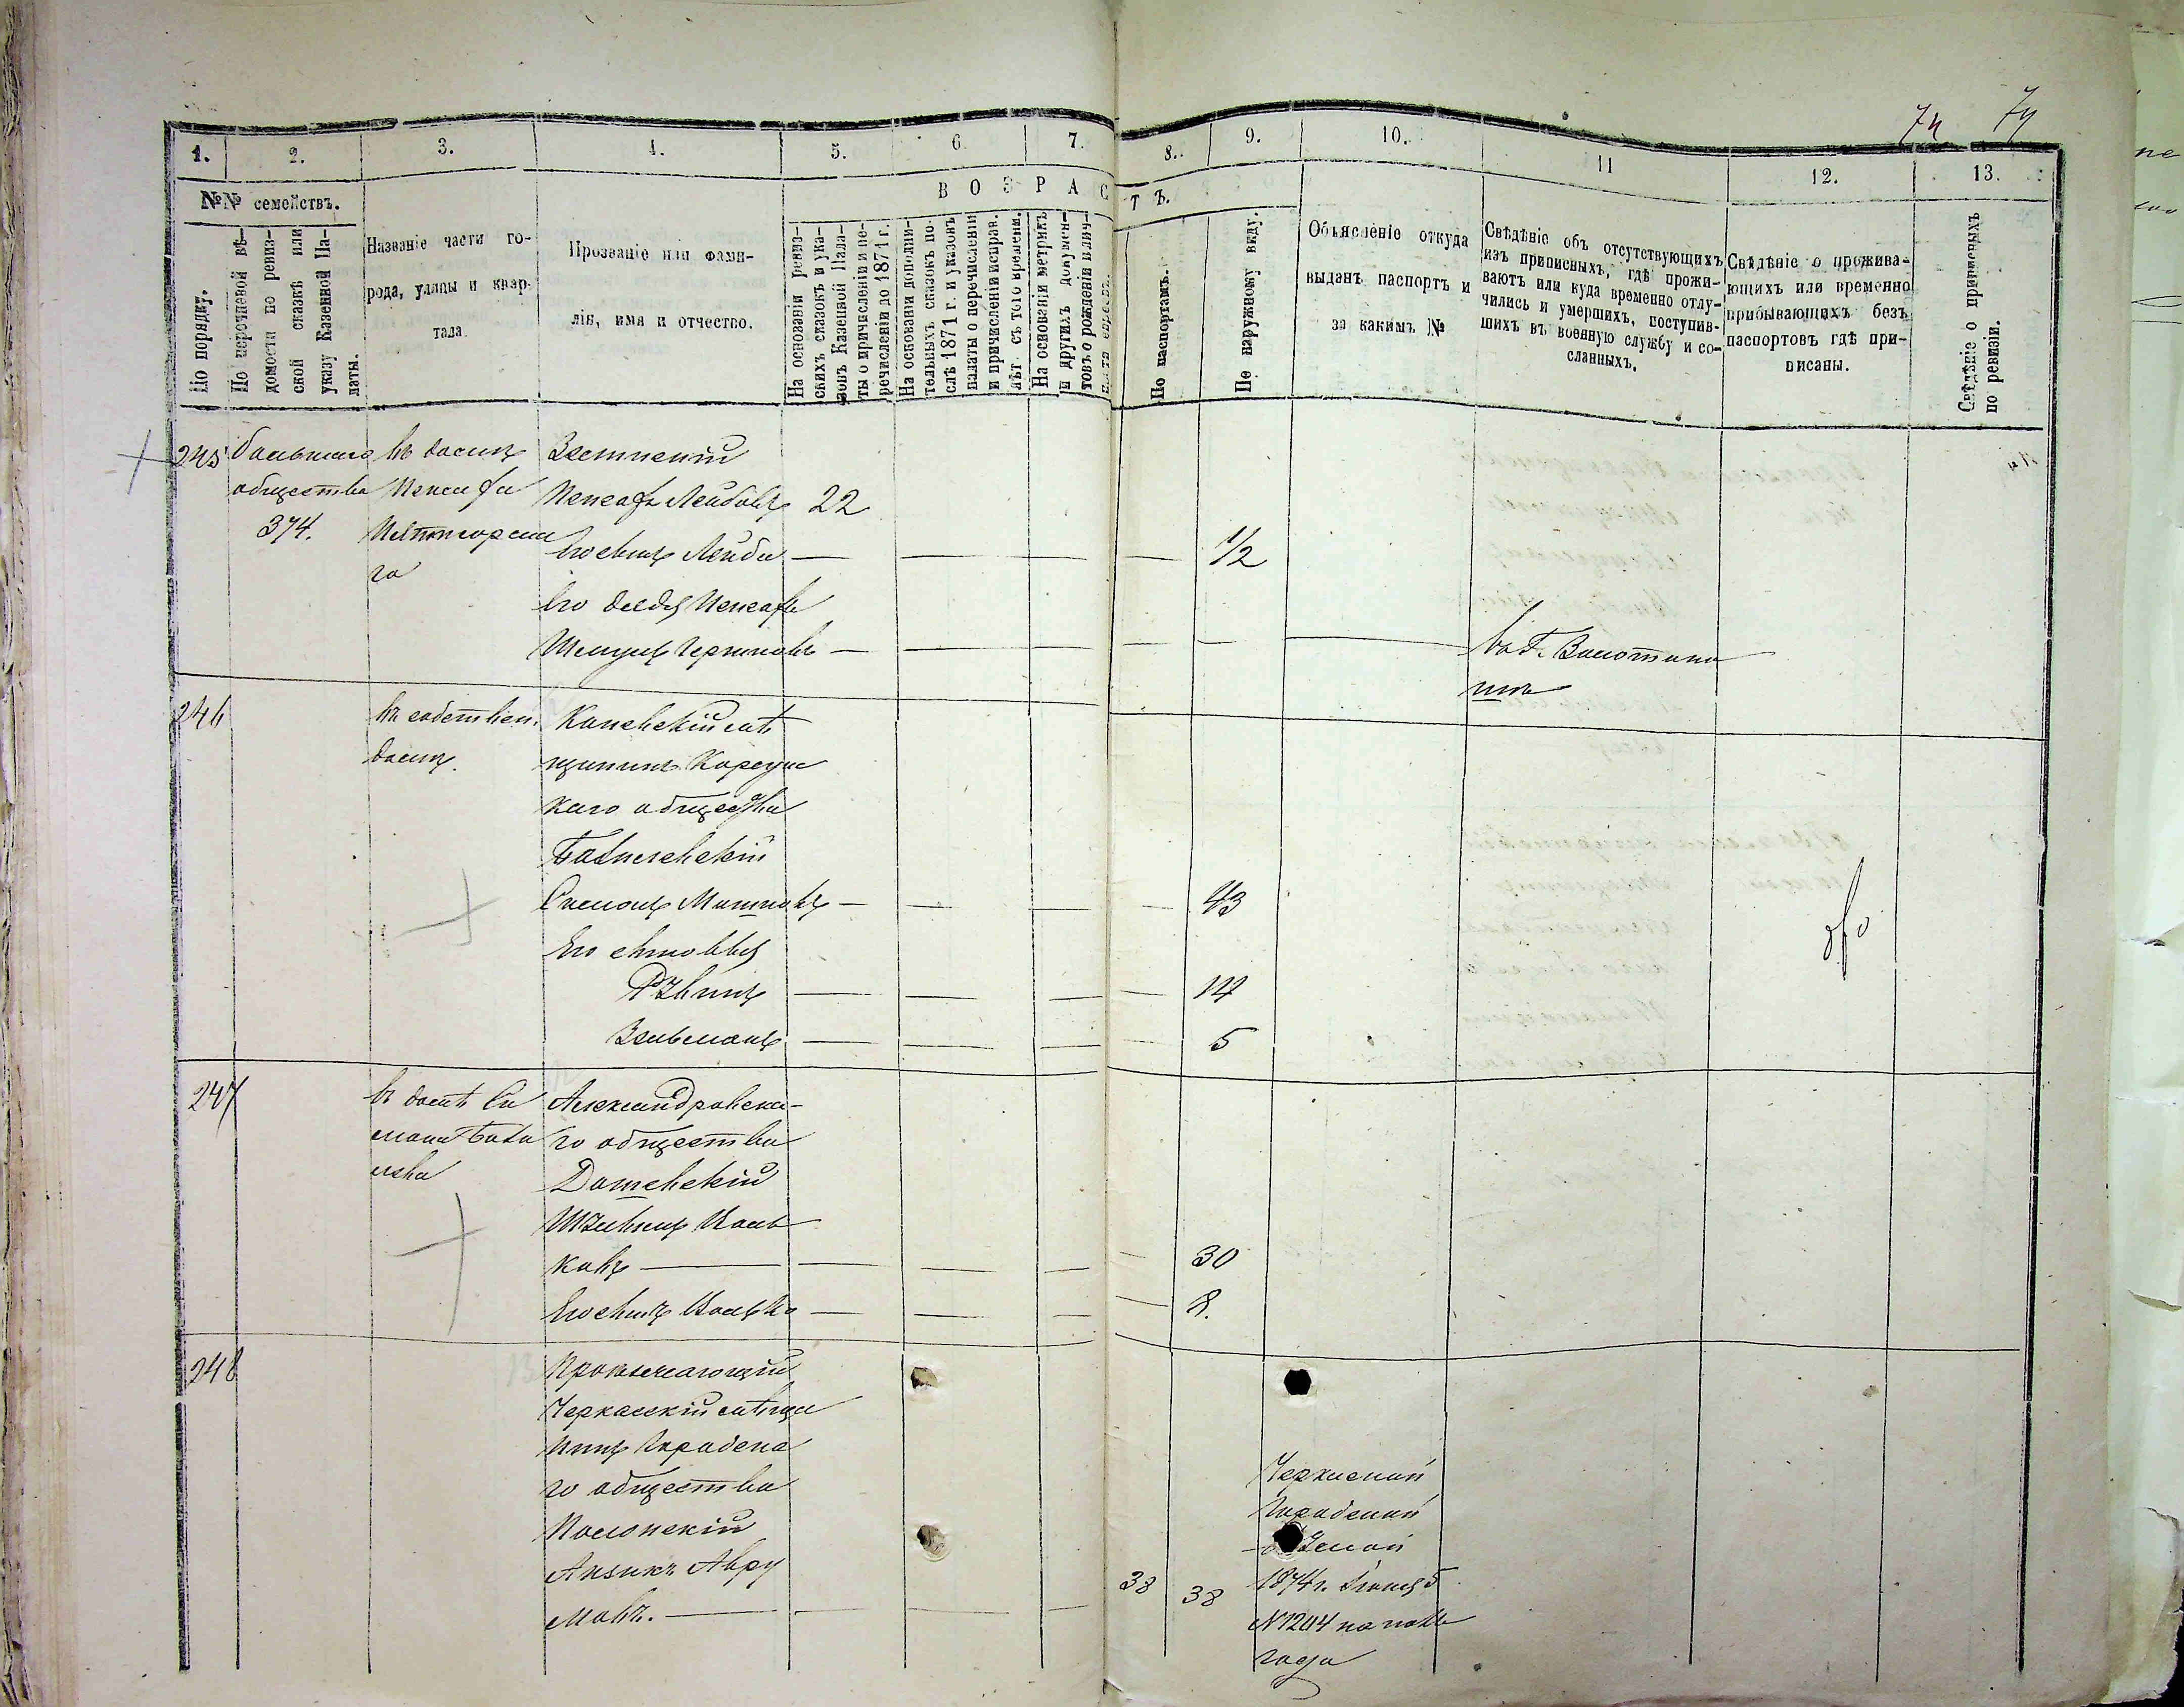 74 74
1. 2. 3. 4. 5. 6. 7. 8. 9. 10. 11 12. 13.
№№ семействъ.
По порядку.
По перечневой вѣ-
домости по ревиз-
ской сказкѣ или
указу Казенной Па-
латы.
Названіе части го-
рода, улицы и квар-
тала.
Прозваніе или фами-
лія, имя и отчество.
ВОЗРАСТЪ.
На основаніи ревиз-
скихъ сказокъ и ука-
зовъ Казенной Пала-
ты о причисленіи и пе-
речисленіи до 1871 г.
На основаніи дополни-
тельныхъ сказокъ по-
слѣ 1871 г. и указовъ
палаты о перечисленіи
и причисленіи исправ.
лѣт съ того времени.
На основаніи метрикъ
и другихъ докумен-
товъ о рожденіи налич-
По паспортамъ.
По наружному виду.
Объясненіе откуда
выданъ паспортъ и
за какимъ №
Свѣдѣніе объ отсутствующихъ
изъ приписныхъ, гдѣ прожи-
ваютъ или куда временно отлу-
чились и умершихъ, поступив-
шихъ въ военную службу и со-
сланныхъ.
Свѣдѣніе о прожива-
ющихъ или временно
прибывающихъ безъ
паспортовъ гдѣ при-
писаны.
Свѣдѣніе о приписныхъ
по ревизіи.
245
общества
374.
въ домѣ
Пятигорска
го
Лейбовъ 22
Его сынъ Лейба — — — — 1/2
Его дядя
— — — — —
въ г. Золотоно
ши
246
въ собствен.
домѣ
Каневскій мѣ
щанинъ Корсунс
каго общества
Симонъ Мошковъ — — — — 43
Его сыновья
— — — — 14
Зельманъ — — — — 5
247
въ домѣ Си
мона
Александровска-
го общества
Дашевскій
Иось
ковъ — — — — 30
Его сынъ — — — — 8.
248
Проживающій
Черкасскій мѣща
нинъ Городска
го общества
Полонскій
Айзикъ Авру
мовъ. — — — — 38 38
Черкаской
Городской
1874 г. Іюня 5
№ 1204 на полъ
года